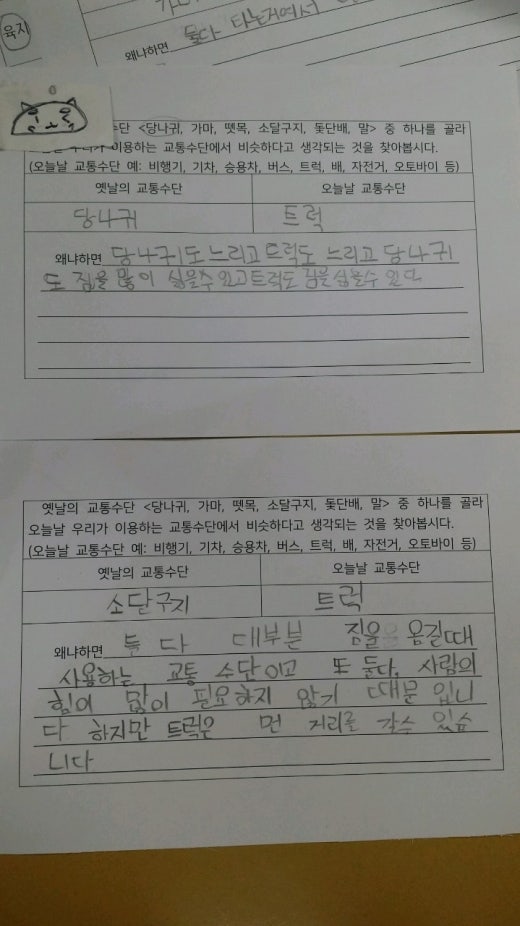 육지
둘다 타는거에서
왜냐하면
수단 <당나귀, 가마, 뗏목, 소달구지, 돛단배, 말> 중 하나를 골라
이용하는 교통수단에서 비슷하다고 생각되는 것을 찾아봅시다.
(오늘날 교통수단 예: 비행기, 기차, 승용차, 버스, 트럭, 배, 자전거, 오토바이 등)
옛날의 교통수단 오늘날 교통수단
당나귀 트럭
왜냐하면 당나귀도 느리고 트럭도 느리고 당나귀
도 짐을 많이 실을수 있고 트럭도 짐을 실을수 있다.
옛날의 교통수단 <당나귀, 가마, 뗏목, 소달구지, 돛단배, 말> 중 하나를 골라
오늘날 우리가 이용하는 교통수단에서 비슷하다고 생각되는 것을 찾아봅시다.
(오늘날 교통수단 예: 비행기, 기차, 승용차, 버스, 트럭, 배, 자전거, 오토바이 등)
옛날의 교통수단 오늘날 교통수단
소달구지 트럭
왜냐하면 둘 다 대부분 짐을 옴길때
사용하는 교통 수단이고 또 둘다, 사람의
힘이 많이 필요하지 않기 때문 입니
다 하지만 트럭은 먼 거리를 갈수 있습
니다